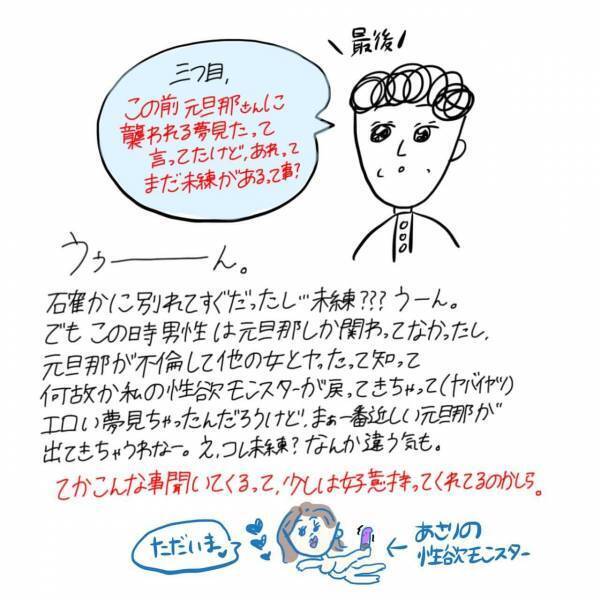 最後
三つ目,
この前 元旦那さんに
襲われる夢見たって
言ってたけど,あれって
まだ未練があるって事?
うぅーーん。
確かに別れてすぐだったし…未練???うーん。
でも この時男性は元旦那しか関わってなかったし,
元旦那が不倫して他の女とヤったって知って
何故か私の性欲モンスターが戻ってきちゃって(ヤバイヤツ)
エロい夢見ちゃったんだろうけど,まぁ一番近しい元旦那が
出てきちゃうわなー。え,コレ未練?なんか違う気も。
てかこんな事聞いてくるって,少しは好意持ってくれてるのかしら。
ただいまっ
← あさりの
性欲モンスター